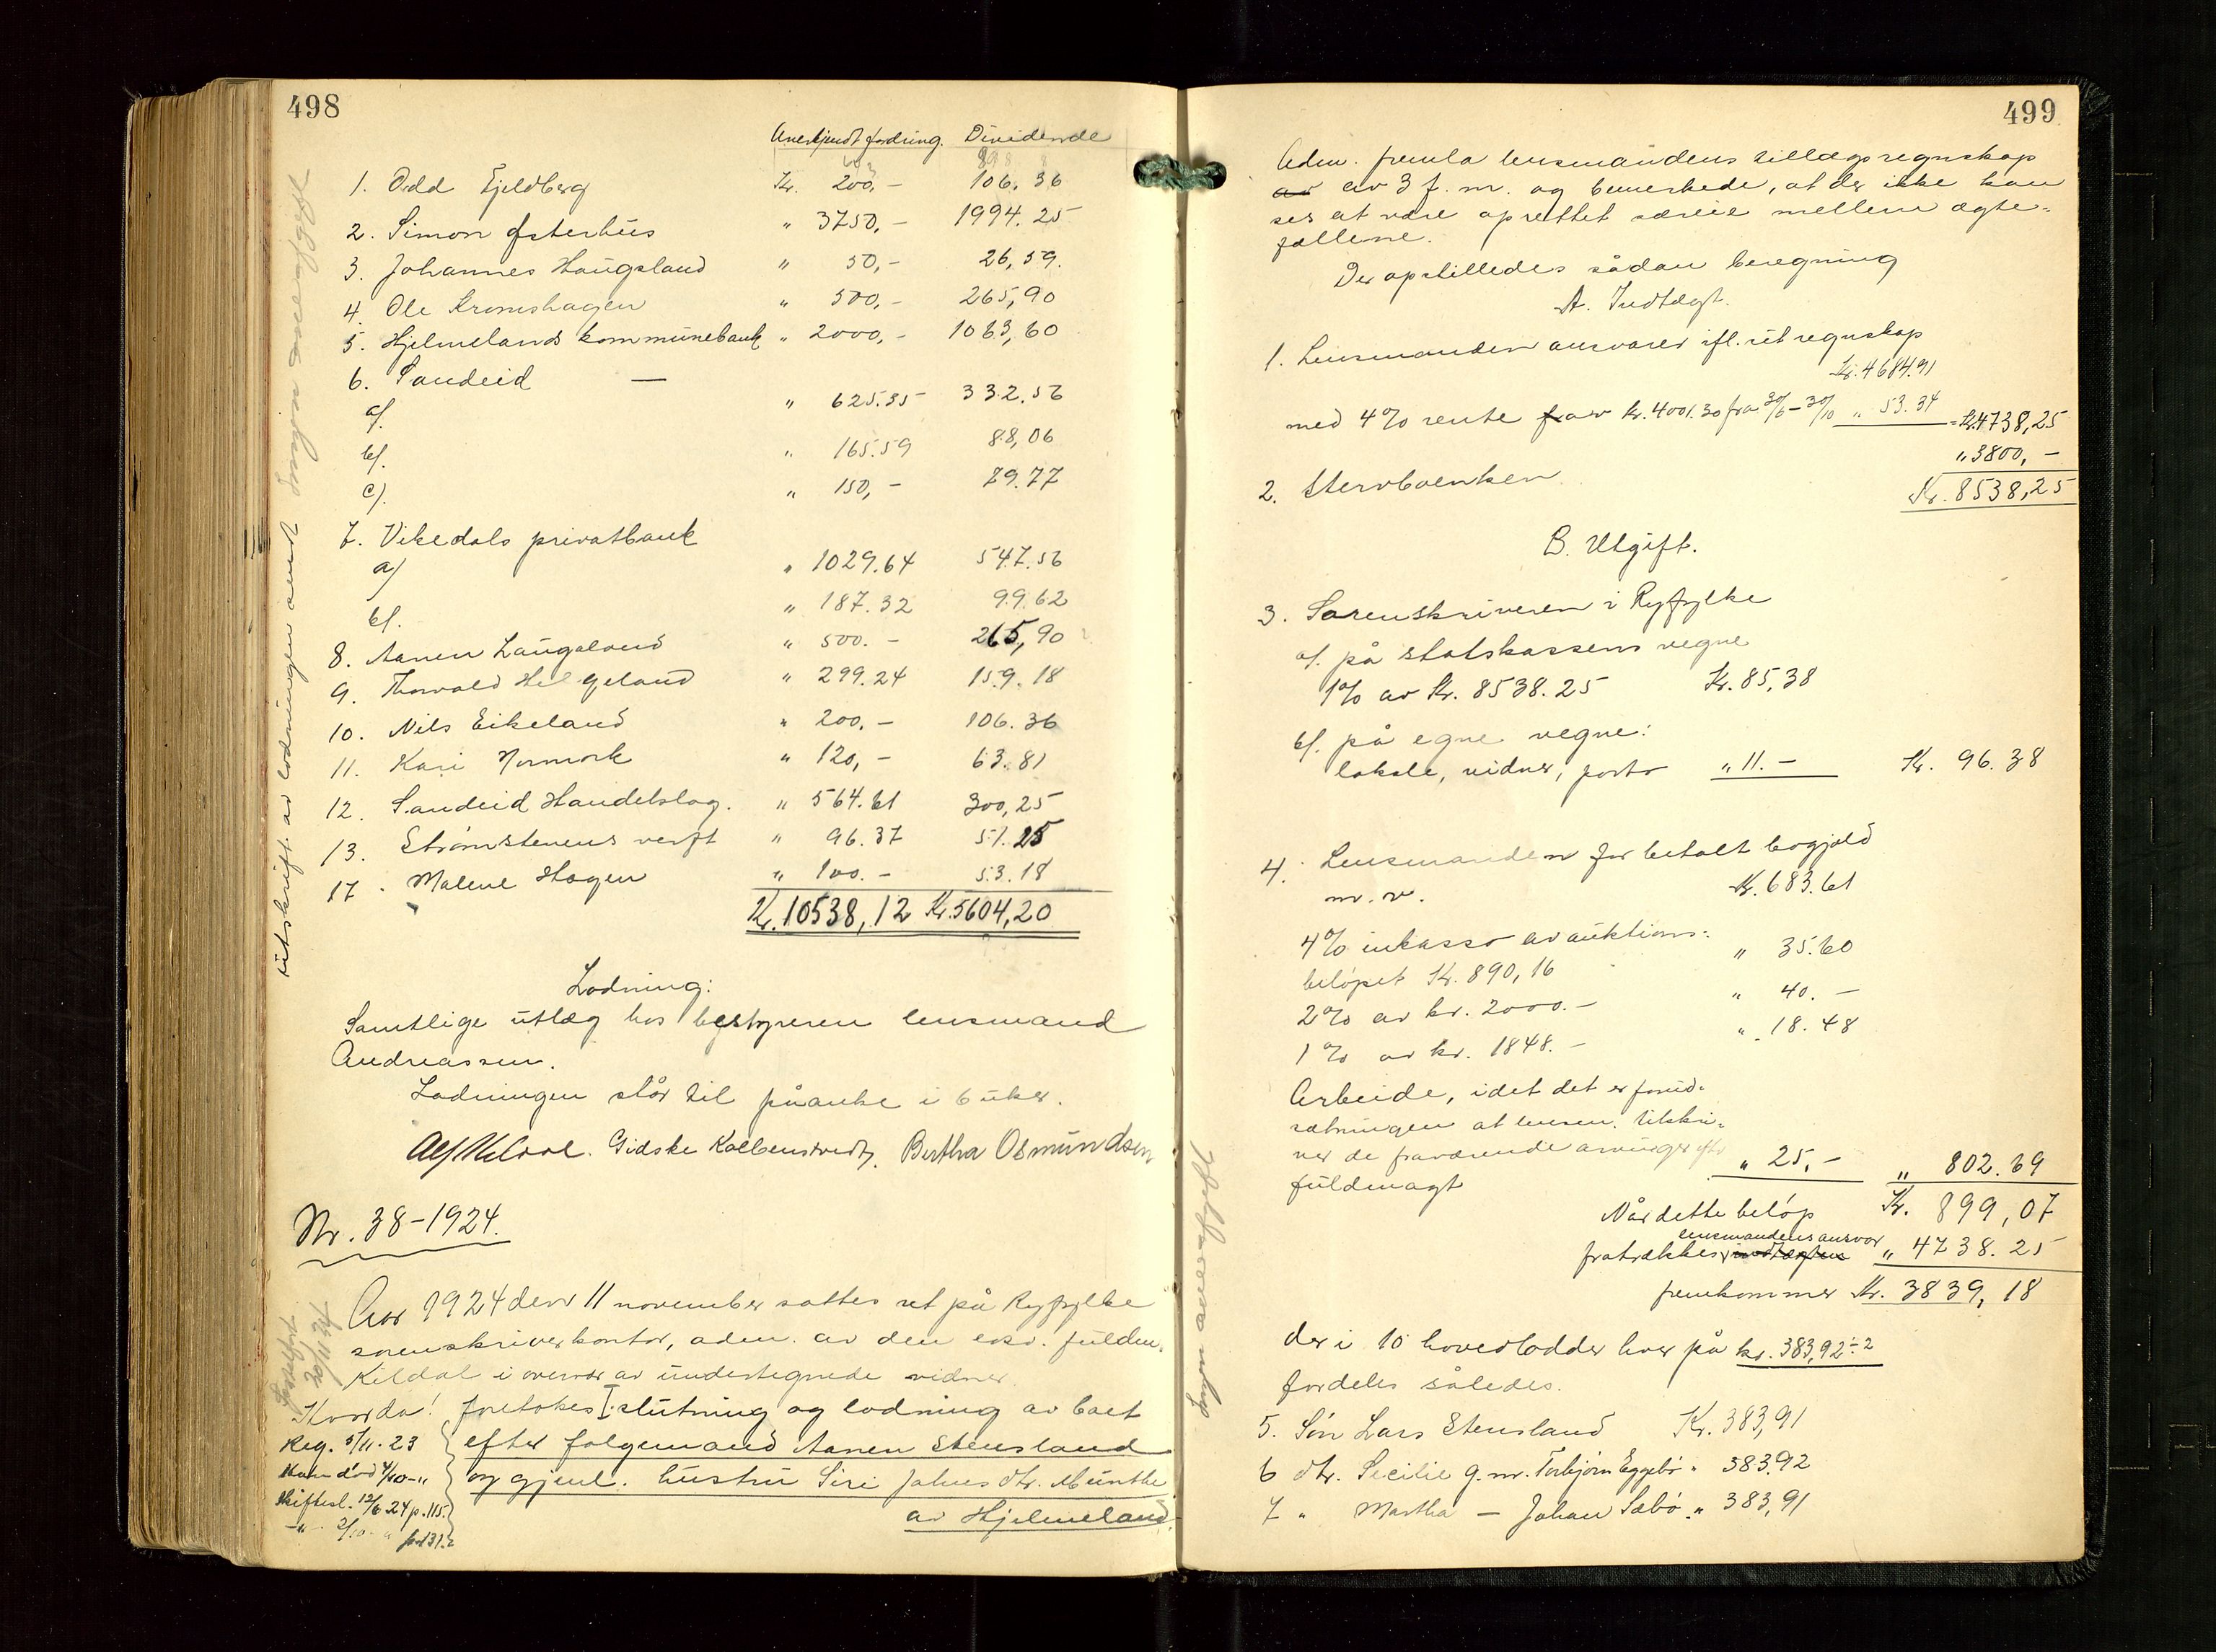 498
Anerkjendt fordring. Dividende
1. Odd Fjeldberg Kr. 200,- 106.36
2. Simon Østerhus " 3750,- 1994.25
3. Johannes Haugsland " 50,- 26,59.
4. Ole Kromshagen " 500,- 265,90
5. Hjelmelands kommunebank " 2000,- 1063,60
6. Sandeid —
a/. " 625.35 332.56
b/. " 165.59 88,06
c/. " 150,- 79.77
7. Vikedals privatbank
a/ " 1029.64 547.56
b/. " 187.32 99.62
8. Aanen Laugaland " 500.- 265,90
9. Thorvald Helgeland " 299.24 159.18
10. Nils Eikeland " 200,- 106.36
11. Kari Normork " 120,- 63.81
12. Sandeid Handelslag. " 564.61 300,25
13. Strømstenens verft " 96.37 51.25
17. Malene Hagen " 100.- 53.18
Kr. 10538,12 Kr. 5604,20
utskrift av lodningen sendt
Lodning:
Samtlige utlæg hos bestyreren lensmand
Andreassen.
Lodningen står til påanke i 6 uker.
Gidske Kolbenstvedt. Bertha Osmundsen
Nr. 38-1924.
Aar 1924 den 11 november sattes ret på Ryfylke
sorenskriverkontor, adm. av den edsv. fuldm.
Kildal i overvær av undertegnede vidner.
Hvorda! foretokes slutning og lodning av boet
Reg. 5/11-23 efter folgemand Aanen Stensland
Mann død 4/10-" og gjenl. hustru Siri Jahnsdtr. Munthe
Skiftesl. 12/6 24 p. 115. av Hjelmeland.
-"- 2/10-" p. 131.
499
Adm. fremla lensmandens tillægsregnskap
av av 3 f. m. og bemerkede, at der ikke kan
ses at være oprettet særeie mellem ægte-
fællene.
Der opstilledes sådan beregning
A. Indtægt.
1. Lensmanden ansvarer ifl. sit regnskap
Kr. 4684.91
med 4% rente av kr. 4001.30 fra 30/6-30/10 " 53.34 = Kr. 4738,25
2. Stervboenken " 3800,-
Kr. 8538,25
B. Utgift.
3. Sorenskriveren i Ryfylke
a/. på statskassens vegne
1% av Kr. 8538.25 Kr. 85,38
b/. på egne vegne:
lokale, vidner, porto " 11.- Kr. 96.38
4. Lensmanden for betalt bogjæld
m. v. Kr. 683.61
4% inkasso av auktions-
beløpet Kr. 890,16 " 35.60
2% av kr. 2000.- " 40.-
1% av kr. 1848.- " 18.48
Arbeide, idet det er forud-
sætningen at lensm. tilskri-
ver de fraværende arvinger efter
fuldmagt " 25,- " 802.69
Når dette beløp Kr. 899,07
lensmandens ansvar
fratrækkes indtægten " 4738.25
fremkommer Kr. 3839,18
der i 10 hovedlodder hver på kr. 383,92÷2
fordeles således.
5. Søn Lars Stensland Kr. 383,91
6 dtr. Secilie g. m. Torbjørn Eggebø " 383.92
7 " Martha — Johan Sæbø " 383,91